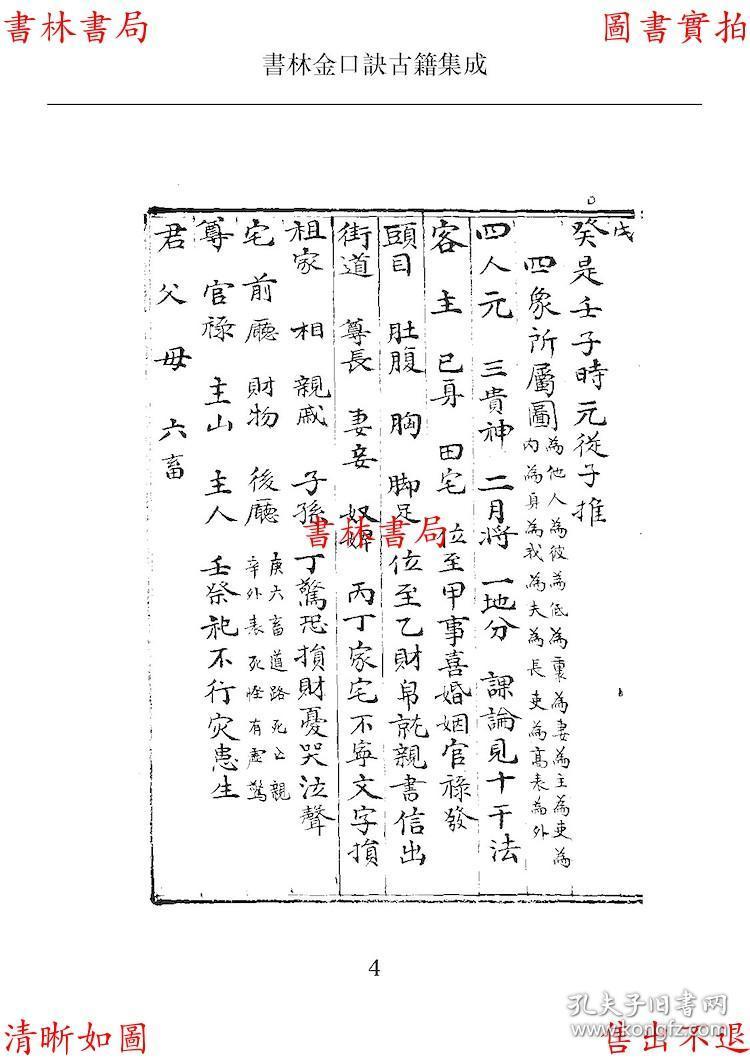 書林書局
圖書實拍
書林金口訣古籍集成
戊
癸是壬子時元從子推
四象所屬圖
為他人為彼為低為裏為妻為主為吏為
內為身為我為夫為長吏為高表為外
四人元 三貴神 二月將 一地分 課論見十干法
客 主 己身 田宅 位至甲事喜婚姻官祿發
頭目 肚腹 胸 脚足 位至乙財帛就親書信出
街道 尊長 妻妾 奴婢 丙丁家宅不寧文字損
祖家 相 親戚 子孫 丁驚恐損財憂哭泣聲
宅 前廳 財物 後廳
庚六畜道路死亡親
辛外表死怪有虛驚
尊 官祿 主山 主人 壬祭祀不行災患生
君父母 六畜
書林書局
4
清晰如圖
售出不退
孔夫子旧书网
www.kongfz.com